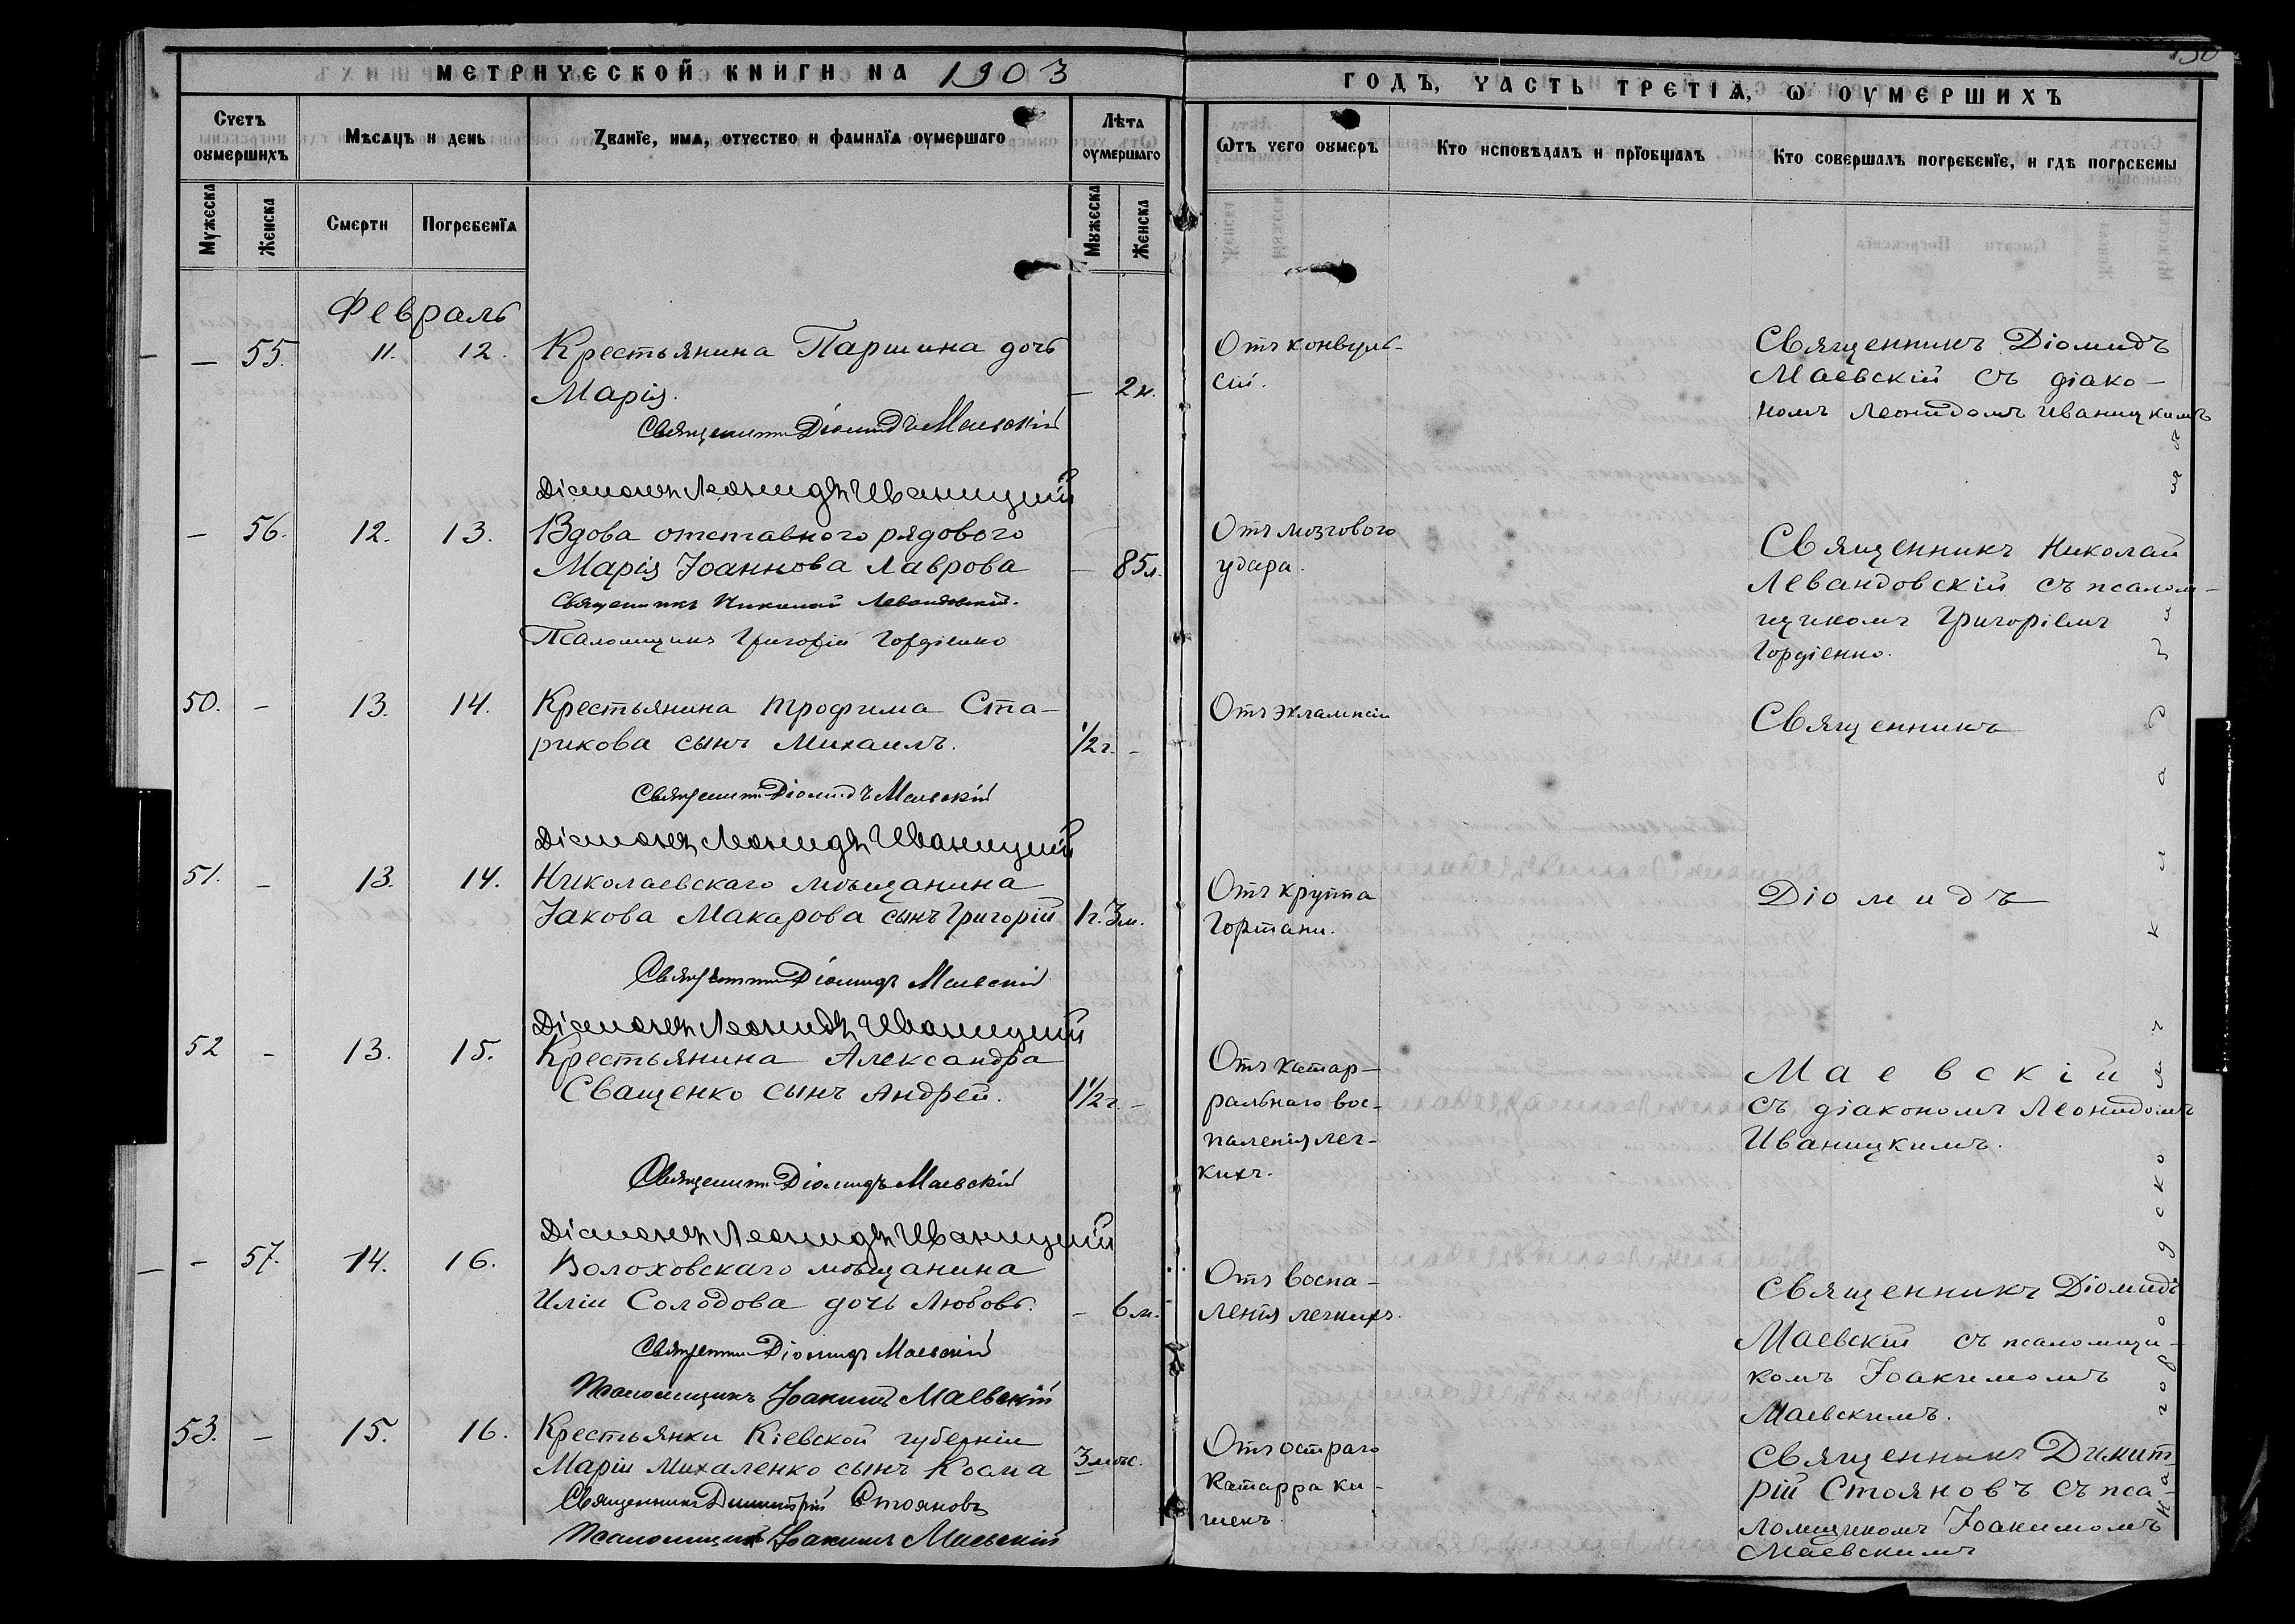 МЕТРИЧЕСКОЙ КНИГИ НА 1903
ГОДЪ, ЧАСТЬ ТРЕТІѦ, Ѡ ОУМЕРШИХЪ
Счетъ оумершихъ
Мѣсѧцъ и день
Званїе, имѧ, отчество и фамилїѧ оумершаго
Лѣта оумершаго
Ѿтъ чего оумеръ
Кто исповѣдалъ и прїобщалъ
Кто совершалъ погребенїе, и гдѣ погребены
Мужеска
Женска
Смерти
Погребенїѧ
Мужеска
Женска
Февраль
— 55. 11. 12. Крестьянина Паршина дочь
Марія. — 2 н.
Священникъ Діомидъ Маевскій
Діаконъ Леонидъ Иваницкій
Отъ конвуль-
сій.
Священникъ Діомидъ
Маевскій съ діако-
номъ Леонидомъ Иваницкимъ
— 56. 12. 13. Вдова отставного рядового
Марія Іоаннова Лаврова — 85 л.
Священникъ Николай Левандовскій.
Псаломщикъ Григорій Гордіенко
Отъ мозгового
удара.
Священникъ Николай
Левандовскій съ псалом-
щикомъ Григоріемъ
Гордіенко.
50. — 13. 14. Крестьянина Трофима Ста-
рикова сынъ Михаилъ. 1/2 г. -
Священникъ Діомидъ Маевскій
Діаконъ Леонидъ Иваницкій
Отъ эклампсіи
Священникъ
51. — 13. 14. Николаевскаго мѣщанина
Іакова Макарова сынъ Григорій 1 г. 3 м.
Священникъ Діомидъ Маевскій
Діаконъ Леонидъ Иваницкій
Отъ круппа
гортани.
Діомидъ
52 — 13. 15. Крестьянина Александра
Сващенко сынъ Андрей. 1 1/2 г. -
Священникъ Діомидъ Маевскій
Діаконъ Леонидъ Иваницкій
Отъ катар-
ральнаго вос-
паленія лег-
кихъ.
Маевскій
съ діакономъ Леонидомъ
Иваницкимъ.
— 57. 14. 16. Волоховскаго мѣщанина
Иліи Солодова дочь Любовь. — 6 м.
Священникъ Діомидъ Маевскій
Псаломщикъ Іоакимъ Маевскій
Отъ воспа-
ленія легкихъ.
Священникъ Діомидъ
Маевскій съ псаломщи-
комъ Іоакимомъ
Маевскимъ.
53. — 15. 16. Крестьянки Кіевской губерніи
Маріи Михаленко сынъ Косма 3 мѣс.
Священникъ Димитрій Стояновъ
Псаломщикъ Іоакимъ Маевскій
Отъ остраго
катарра ки-
шекъ.
Священникъ Димит-
рій Стояновъ съ пса-
ломщикомъ Іоакимомъ
Маевскимъ
На городскомъ кладбищѣ